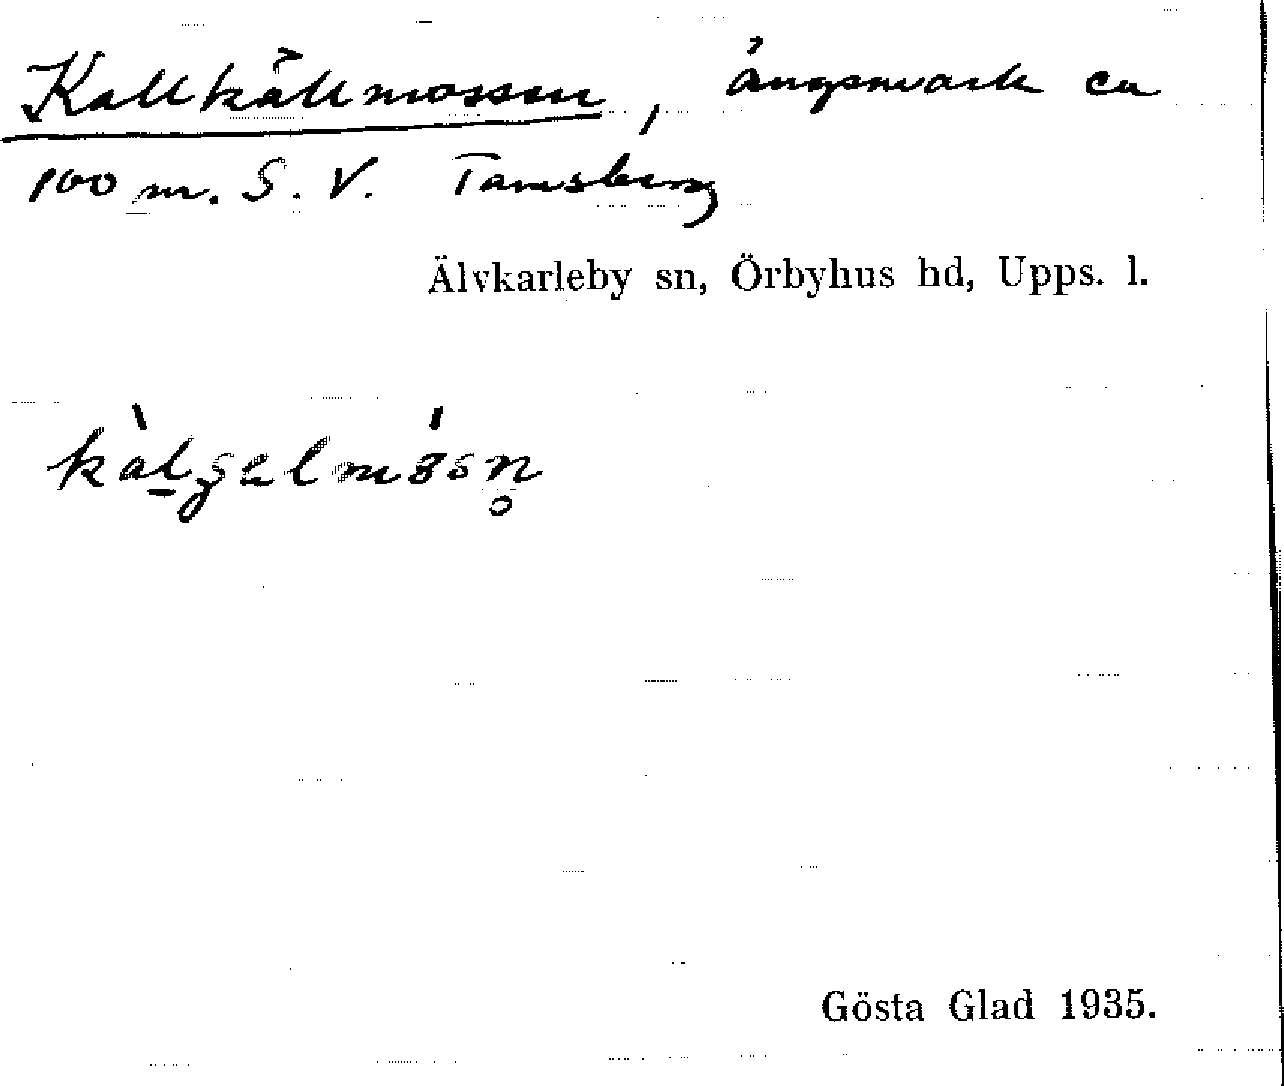 Kallkällmossen, ängsmark ca
100 m. S. V. Tamsberg
Älvkarleby sn, Örbyhus hd, Upps. l.
Gösta Glad 1935.